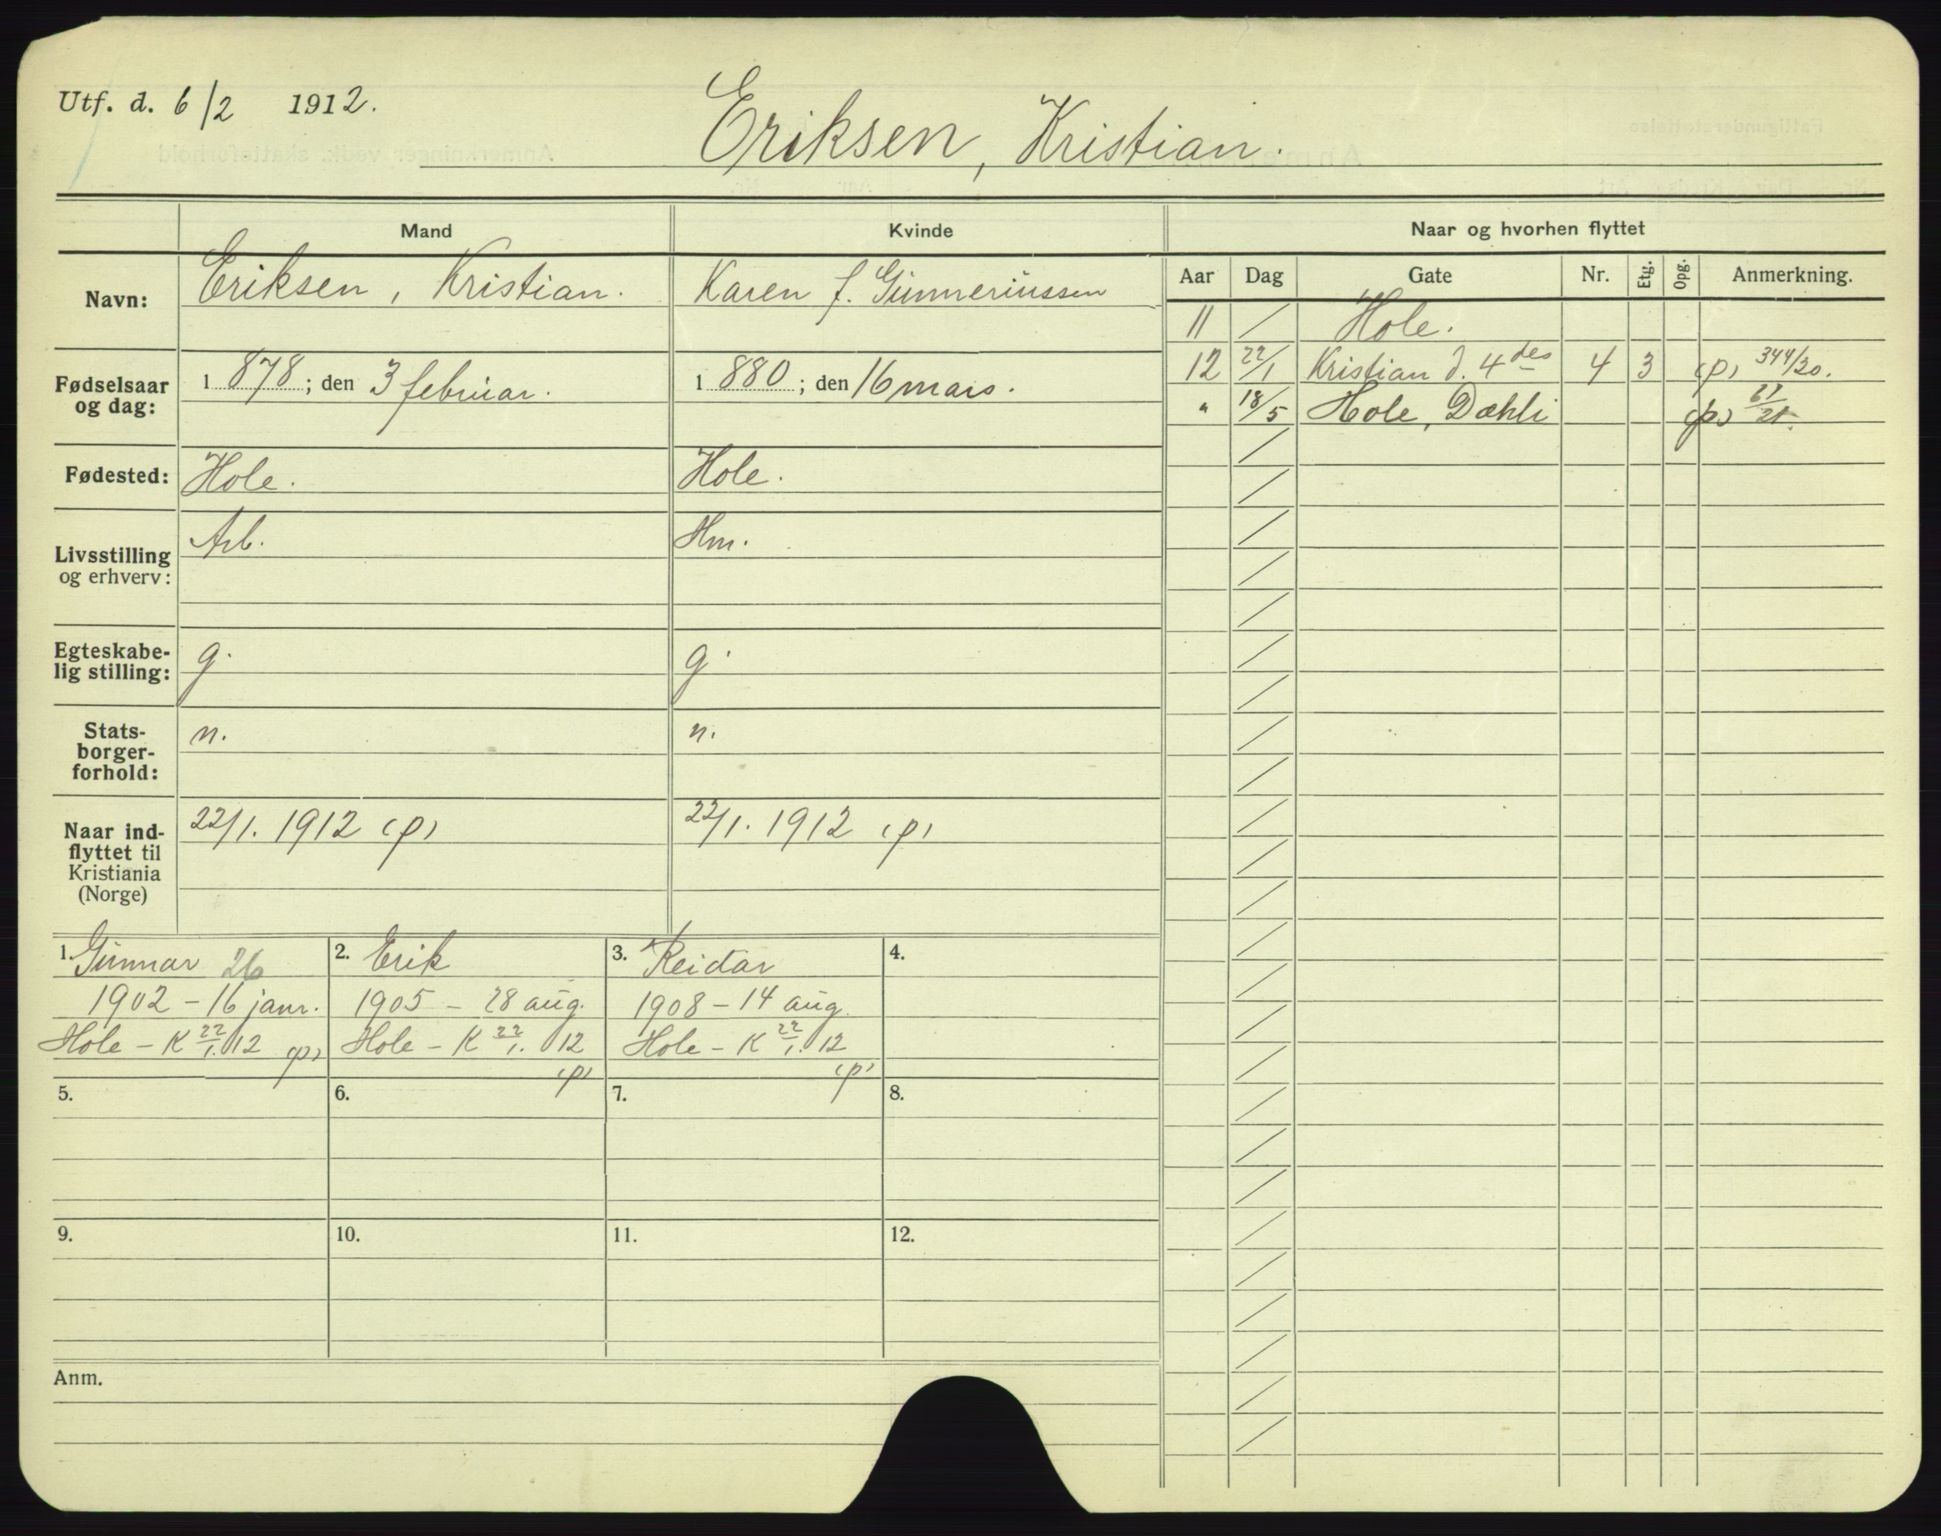 Utf. d. 6/2 1912.
Eriksen, Kristian.
Mand
Kvinde
Naar og hvorhen flyttet
Navn:
Eriksen, Kristian.
Karen f. Gunneriussen
Aar Dag Gate Nr. Etg. Opg. Anmerkning.
11 / Hole.
12 22/1 Kristian d. 4des 4 3 (p) 344/20.
" 18/5 Hole, Dæhli (p)
Fødselsaar og dag:
1878; den 3 februar.
1880; den 16 mars.
Fødested:
Hole.
Hole.
Livsstilling og erhverv:
Arb.
Hm.
Egteskabe-
lig stilling:
g.
g.
Stats-
borger-
forhold:
n.
n.
Naar ind-
flyttet til
Kristiania
(Norge)
22/1. 1912 (p)
22/1. 1912 (p)
1. Gunnar 26
1902 - 16 janr.
Hole - K 22/1. 12 (p)
2. Erik
1905 - 28 aug.
Hole - K 22/1. 12
(p)
3. Reidar
1908 - 14 aug.
Hole - K 22/1. 12
(p)
4.
5.
6.
7.
8.
9.
10.
11.
12.
Anm.